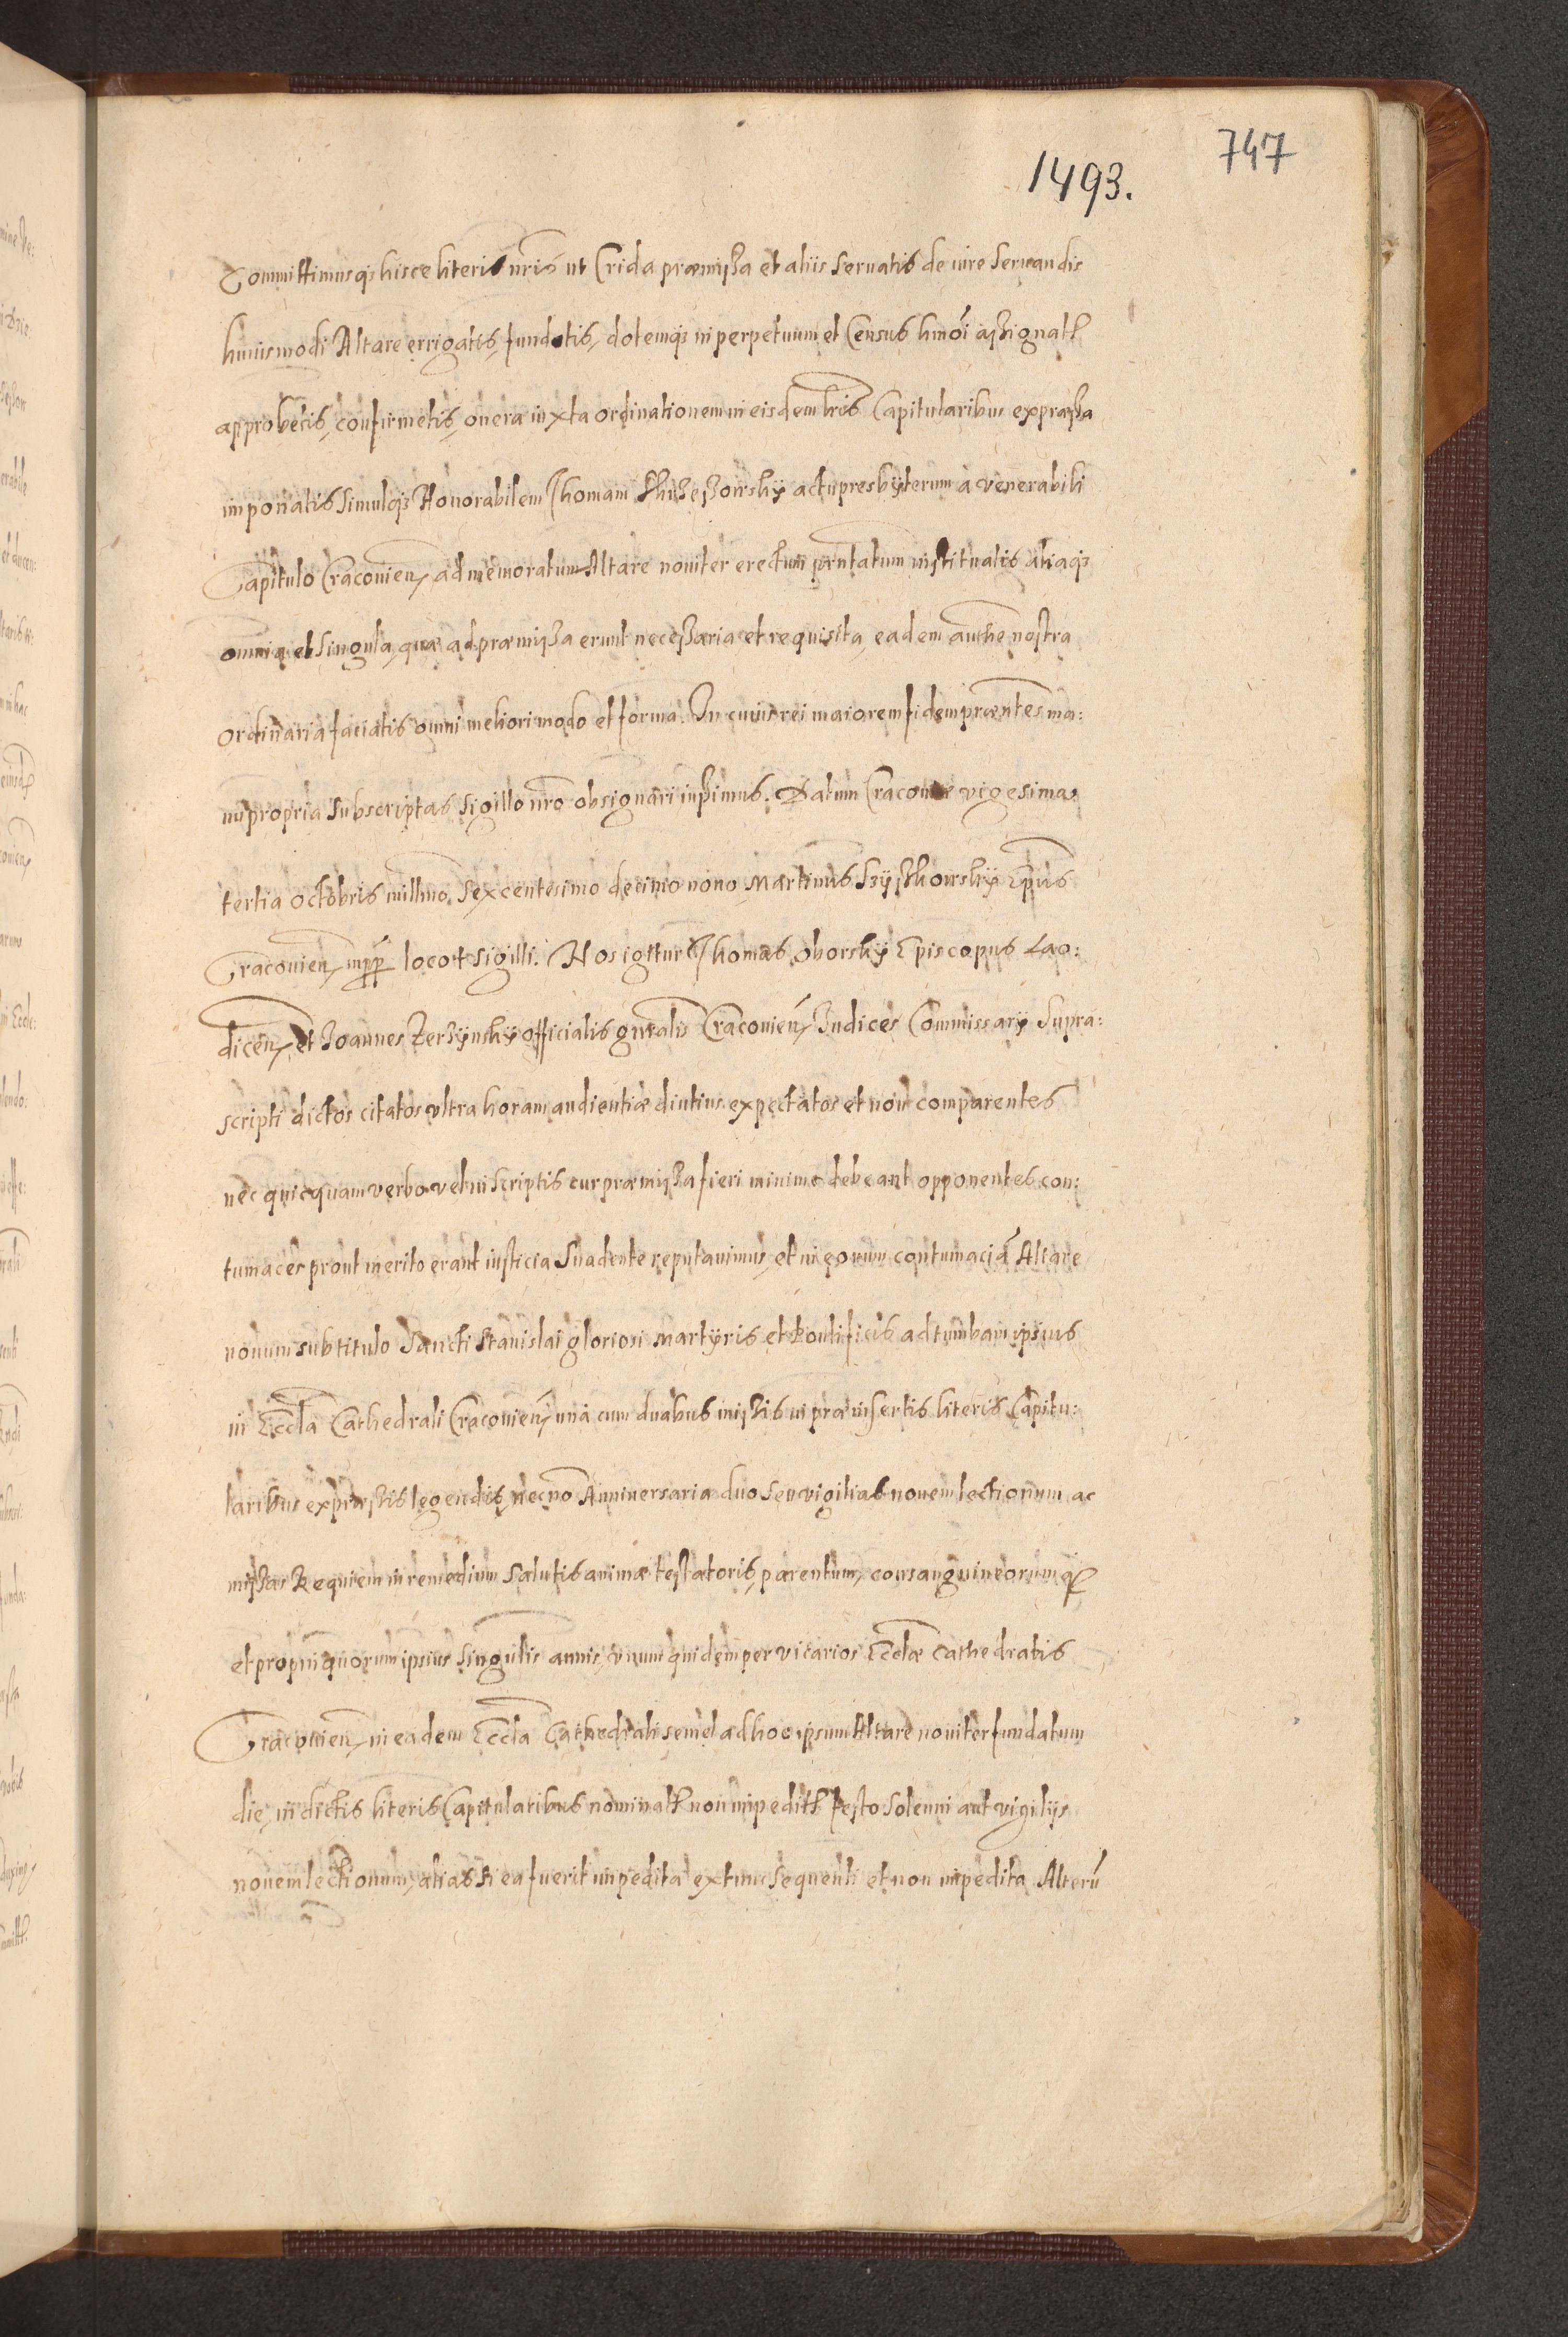 747
1493.
Committimusq; hisce literis nris ut Crida præmissa et aliis servatis de iure servandis
huiusmodi Altare errigatis, fundetis, dotemq; in perpetuum et Census hmoi assignat
approbetis, confirmetis, onera iuxta ordinationem in eisdem lris Capitularibus expressa
imponatis simulq; Honorabilem Thomam actu presbyterum a venerabili
Capitulo Cracovien, ad memoratum Altare noviter erectum pntatum instituatis aliaq;
omnia et singula, quæ ad præmissa erunt necessaria et requisita, eadem authe nostra
ordinaria faciatis omni meliori modo et forma. In cuius rei maiorem fidem præntes ma:
nu propria subscriptas sigillo nro obsignari iussimus. Datum Cracoviæ vigesima
tertia octobris millmo sexcentesimo decimo nono Martinus Szyszkowsky Epus
Cracovien, mpp loco + sigilli. Nos igitur Thomas oborsky Episcopus Lao:
dicen, et Joannes Zerzynsky officialis gnralis Cracovien, Judices Commissary supra:
scripti dictos citatos ultra horam audientiæ diutius expectatos et non comparentes
nec quicquam verbo vel in scriptis cur præmissa fieri minime debeant opponentes con:
tumaces prout merito erant iusticia suadente reputavimus, et in eorum contumaciã Altare
nouum sub titulo Sancti Stanislai gloriosi martyris et Pontificis ad tumbam ipsius
in Eccla Cathedrali Cracovien, una cum duabus missis in præinsertis literis Capitu:
laribus expressis legendis, necno Anniversaria duo seu vigilias novem lectionum ac
missas Requiem in remedium salutis animæ testatoris, parentum, consanguineorumq;
et propinquorum ipsius singulis annis, unum quidem per vicarios Ecclæ Cathedralis
Cracovien, in eadem Eccla Cathedrali semel ad hoc ipsum Altare noviter fundatum
die, in dictis literis Capitularibus nominat non impedit festo solenni aut vigilijs
novem lectionum, alias si ea fuerit impedita extunc sequenti et non impedita Alterũ